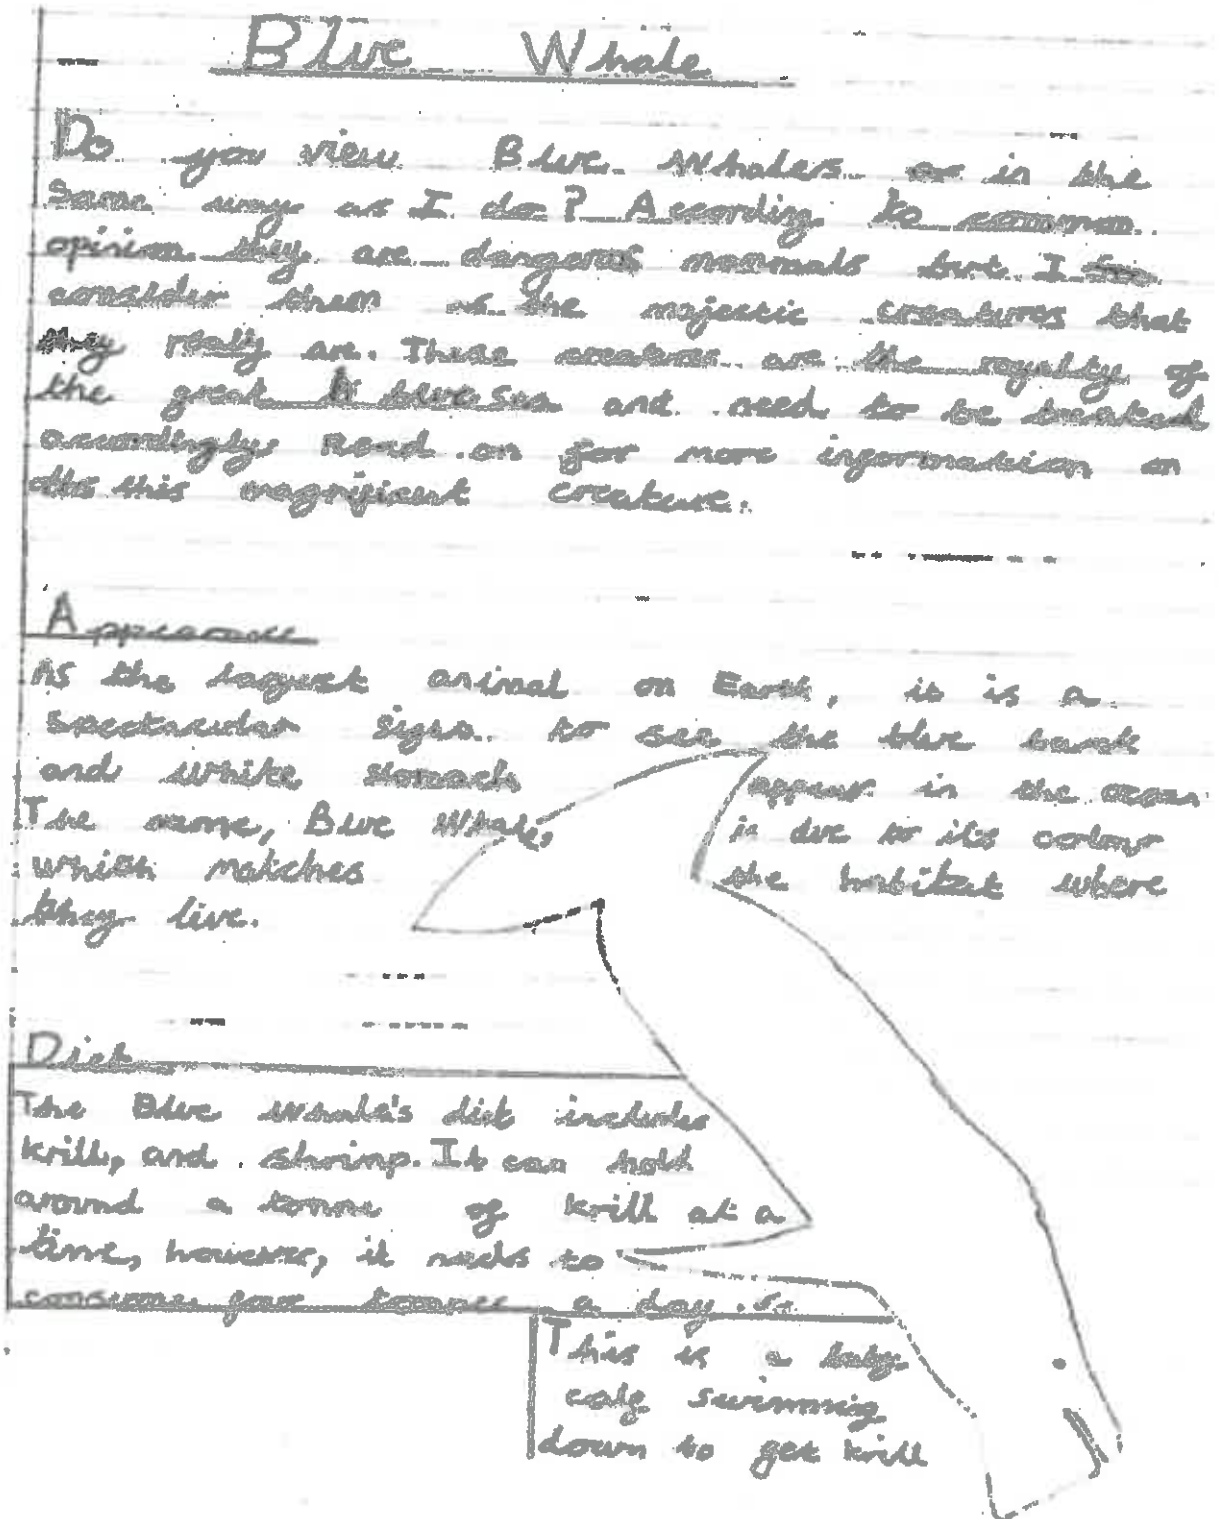 Blue Whale
Do you view Blue Whales or in the
same way as I do? According to common
opinion they are dangerous mammals but I
consider them as the majestic creatures that
they really are. These creatures are the royalty of
the great blue sea and need to be treated
accordingly. Read on for more information on
this magnificent creature.
Appearance
As the largest animal on Earth, it is a
spectacular sign to see the blue back
and white stomach appear in the ocean
The name, Blue Whale, is due to its colour
which matches the habitat where
they live.
Diet
The Blue Whale's diet includes
krill, and shrimp. It can hold
around a tonne of krill at a
time, however, it needs to
consume four tonnes a day.
This is a baby
calf swimming
down to get krill